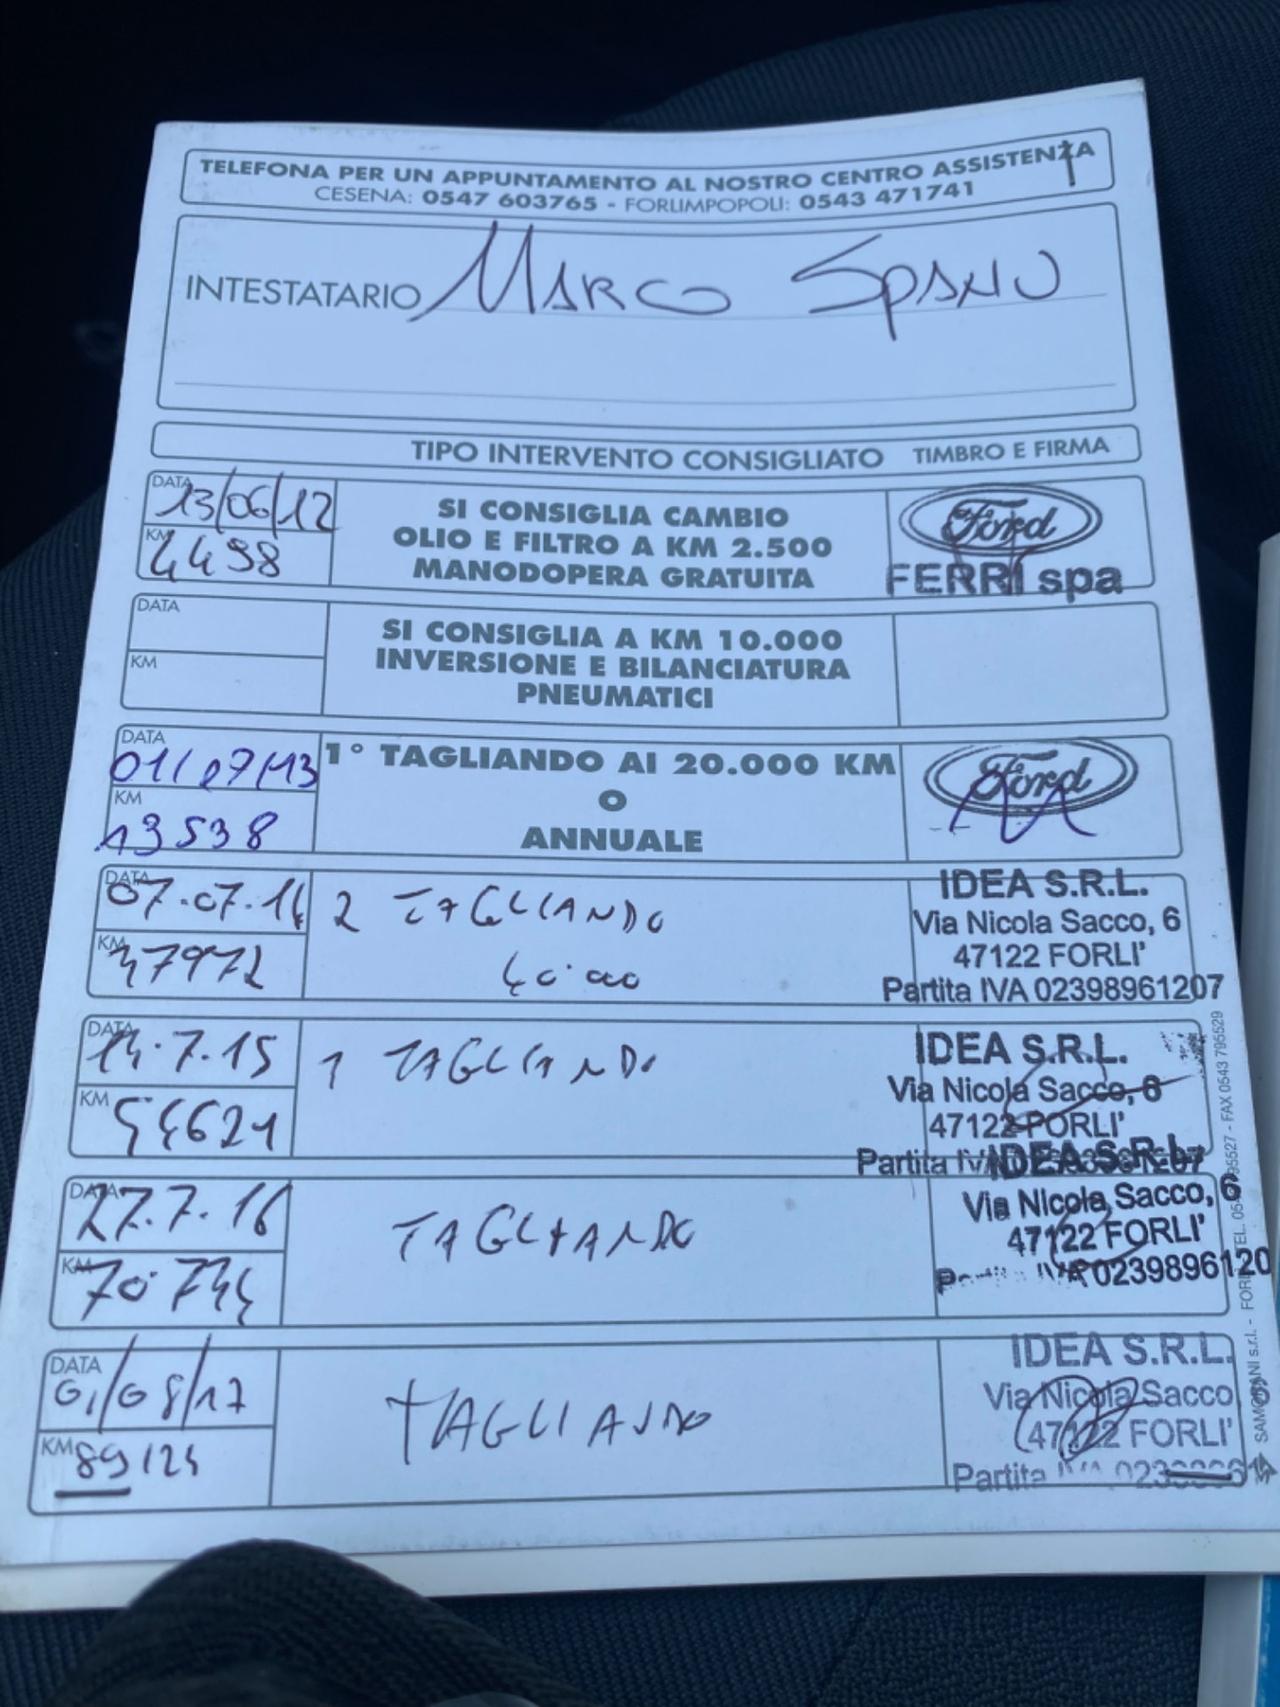 TELEFONA PER UN APPUNTAMENTO AL NOSTRO CENTRO ASSISTENZA
CESENA: 0547 603765 - FORLIMPOPOLI: 0543 471741
INTESTATARIO MARCO SPANU
TIPO INTERVENTO CONSIGLIATO TIMBRO E FIRMA
DATA 13/06/12
KM 4498
SI CONSIGLIA CAMBIO
OLIO E FILTRO A KM 2.500
MANODOPERA GRATUITA
Ford
FERRI spa
DATA
KM
SI CONSIGLIA A KM 10.000
INVERSIONE E BILANCIATURA
PNEUMATICI
DATA 01/07/13
KM 13538
1° TAGLIANDO AI 20.000 KM
O
ANNUALE
Ford
DATA 07.07.14
KM 37972
2 TAGLIANDO
40.000
IDEA S.R.L.
Via Nicola Sacco, 6
47122 FORLI'
Partita IVA 02398961207
DATA 14.7.15
KM 54621
TAGLIANDO
IDEA S.R.L.
Via Nicola Sacco, 6
47122 FORLI'
Partita IVA
DATA 27.7.16
KM 70744
TAGLIANDO
IDEA S.R.L.
Via Nicola Sacco, 6
47122 FORLI'
Partita IVA 0239896120
DATA 01/08/17
KM 89124
TAGLIANDO
IDEA S.R.L.
Via Nicola Sacco
47122 FORLI'
Partita IVA
SAMORANI s.r.l. - FORLI - TEL. - FAX 0543 795529